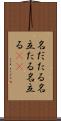 名だたる名
立たる名立
る